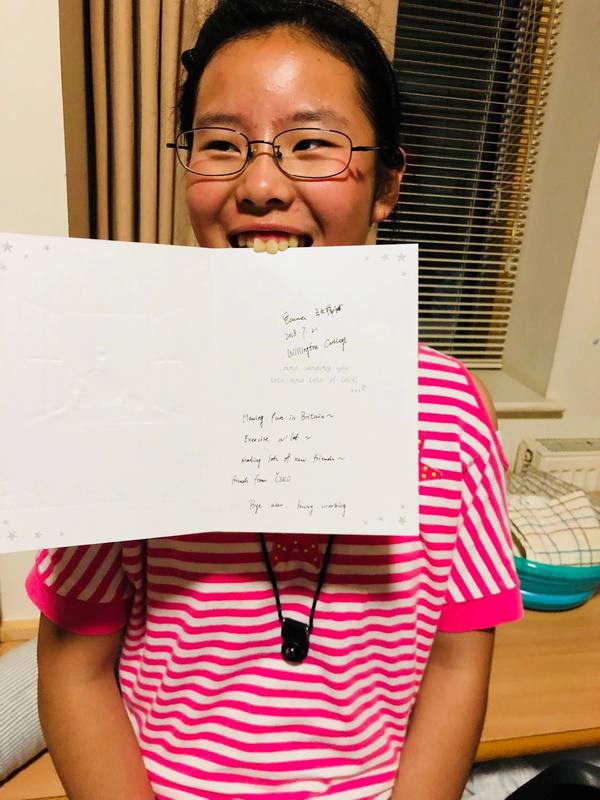 Emma
2018.7.21
Willington College
and sending you
lots and lots of love,
Having Fun in Britain~
Exercise a lot ~
making lots of new friends~
friends from
Bye now. busy working